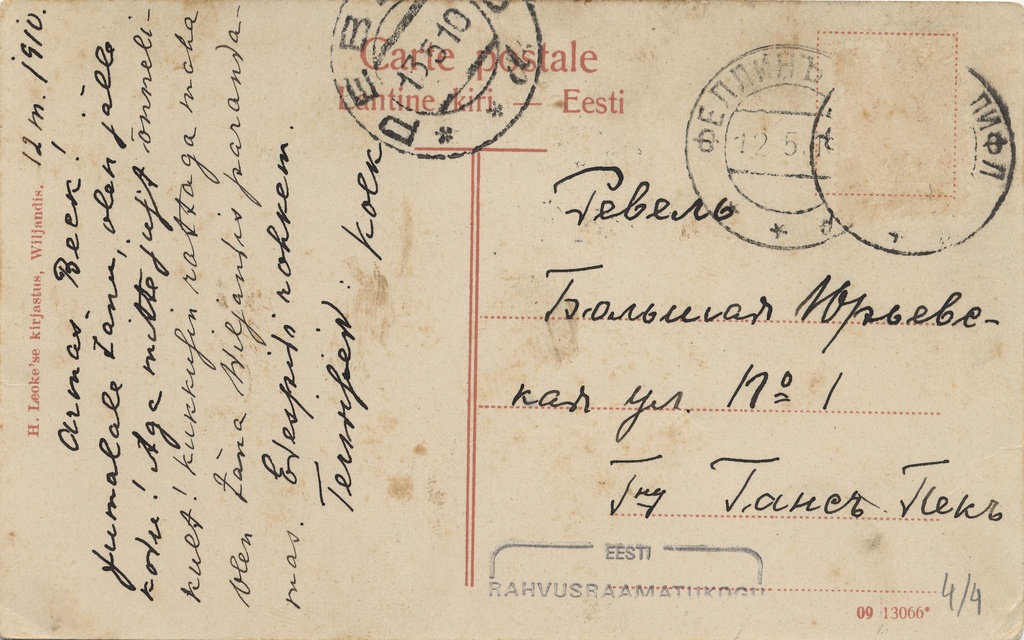 Carte postale
Lahtine kiri — Eesti
РЕВЕЛ
13 5 10
ФЕЛЛИНЪ
12.5.
ЛИФЛ
H. Leoke'se kirjastus, Wiljandis.
12 m. 1910.
Armas Beek!
Jumalale tänu, olen jälle
kodu! Aga mitte just õnneli-
kult! kukkusin rattaga maha
olen täna Wiljandis paranda-
mas. Edespidi rohkem.
Terwisid. Kolk
Ревель
Большая Юрьевс-
кая ул. № 1
Гну Гансъ Пекъ
EESTI
RAHVUSRAAMATUKOGU
09 13066*
4/4